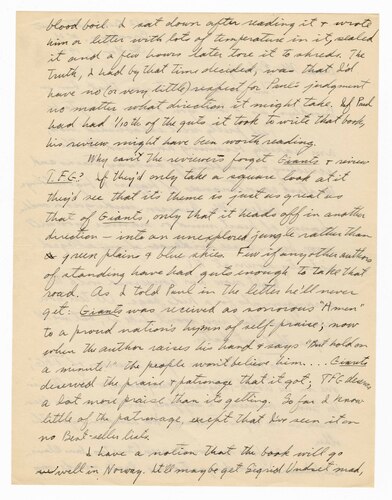 blood boil. I sat down after reading it & wrote
him a letter with lots of temperature in it, sealed
it and a few hours later tore it to shreds. The
truth, I had by that time decided, was that I'd
have no (or very little) respect for Paul's judgment
no matter what direction it might take. If Paul
had had 1/10th of the guts it took to write that book,
his review might have been worth reading.
Why can't the reviewers forget Giants & review
T.F.G.? If they'd only take a square look at it
they'd see that its theme is just as great as
that of Giants, only that it heads off in another
direction — into an unexplored jungle rather than
green plains & blue skies. Few if any other authors
of standing have had guts enough to take that
road. As I told Paul in the letter he'll never
get: Giants was received as a sonorous "Amen"
to a proud nation's hymn of self-praise; now
when the author raises his hand & says "But hold on
a minute" the people won't believe him.... Giants
deserved the praise & patronage that it got; TFG deserves
a lot more praise than its getting. So far I know
little of the patronage, except that I've seen it on
no Best-seller lists.
I have a notion that the book will go
well in Norway. It'll maybe get Sigrid Undset mad,